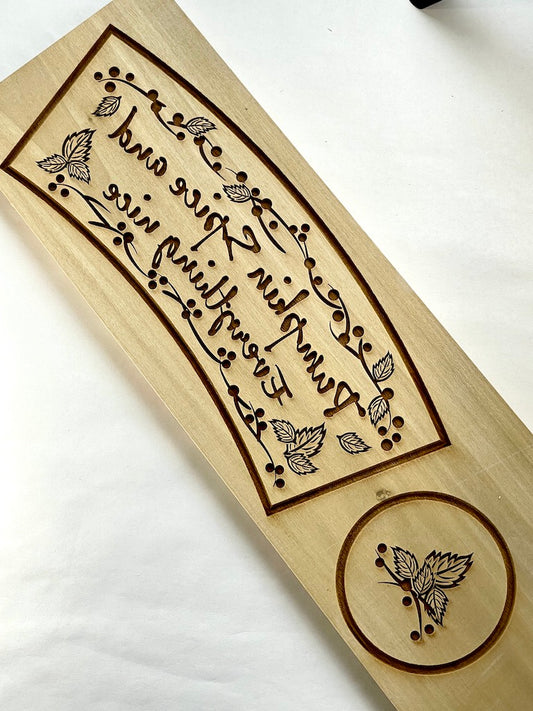 Pumpkin Spice and
Everything nice